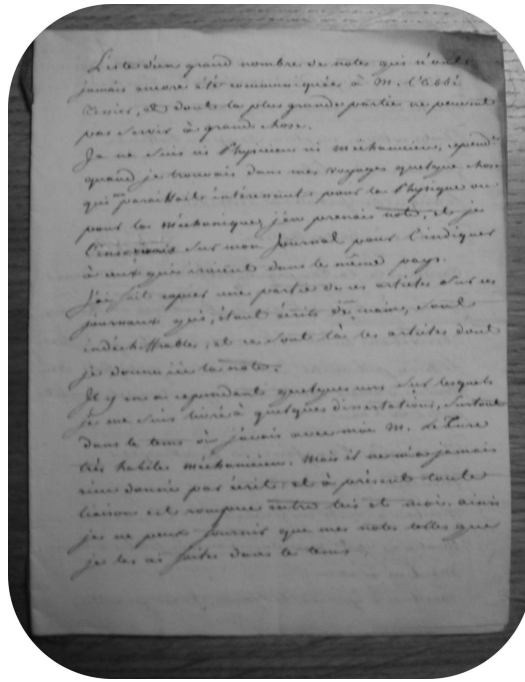 Liste d'un grand nombre de notes qui n'ont
jamais encore été communiquées à M. l'abbé
Tessier, et dont la plus grande partie ne peuvent
pas servir à grand chose.
Je ne suis ni Physicien ni méchanicien, cepend.t
quand je trouvais dans mes voyages quelque chose
qui me paraissait intéressant pour la Physique ou
pour la méchanique, j'en prenais note, et je
l'inserrais sur mon Journal pour l'indiquer
à ceux qui iraient dans le même pays.
J'ai fait copier une partie de ces articles sur ces
journaux qui, étant écrits de ma main, sont
indéchiffrables, et ce sont là les articles dont
je donne ici la note.
Il y en a cependant quelques uns sur lesquels
je me suis livré à quelques dissertations, surtout
dans le tems où j'avais avec moi M.
très habile méchanicien. Mais il ne m'a jamais
rien donné par écrit, et à présent toute
liaison est rompue entre lui et moi, ainsi
je ne peux fournir que mes notes telles que
je les ai faites dans le tems